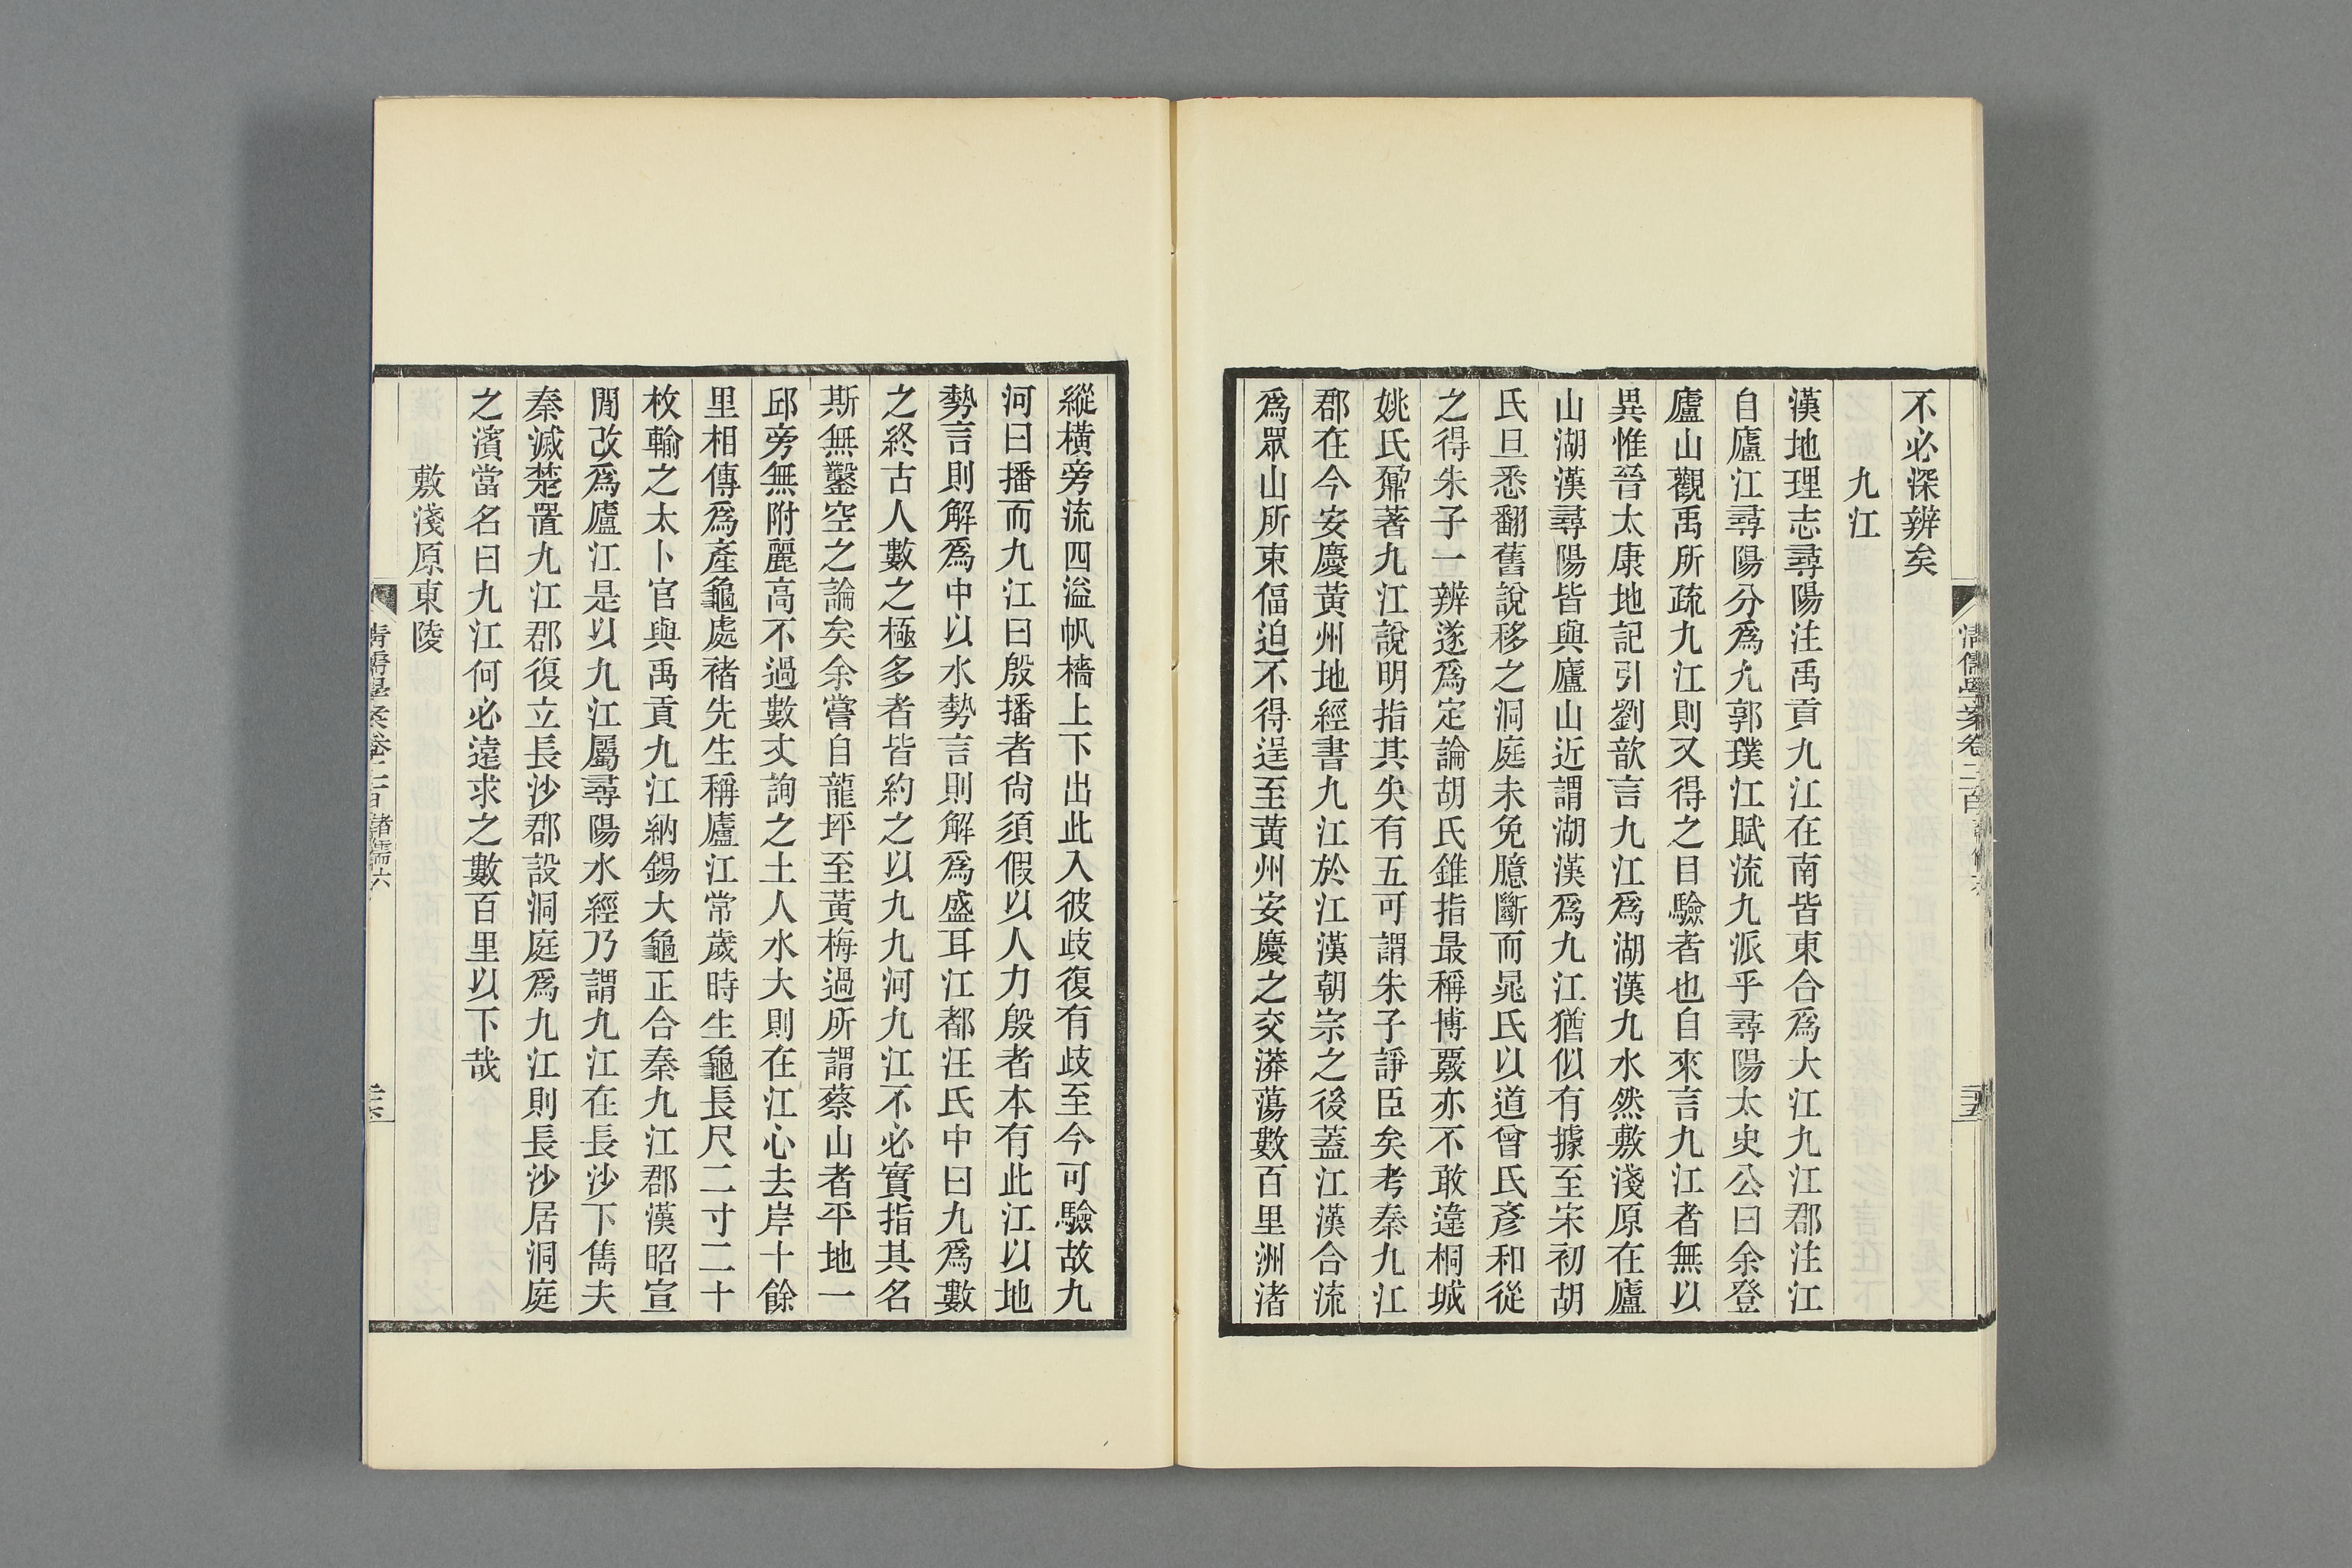 清儒學案卷二百 諸儒六
三五
不必深辨矣
九江
漢地理志尋陽注禹貢九江在南皆東合爲大江九江郡注江
自廬江尋陽分爲九郭璞江賦流九派乎尋陽太史公曰余登
廬山觀禹所疏九江則又得之目驗者也自來言九江者無以
異惟晉太康地記引劉歆言九江爲湖漢九水然敷淺原在廬
山湖漢尋陽皆與廬山近謂湖漢爲九江猶似有據至宋初胡
氏旦悉翻舊說移之洞庭未免臆斷而晁氏以道曾氏彥和從
之得朱子一辨遂爲定論胡氏錐指最稱博覈亦不敢違桐城
姚氏鼐著九江說明指其失有五可謂朱子諍臣矣考秦九江
郡在今安慶黃州地經書九江於江漢朝宗之後蓋江漢合流
爲眾山所束偪迫不得逞至黃州安慶之交漭蕩數百里洲渚
縱橫旁流四溢帆檣上下出此入彼歧復有歧至今可驗故九
河曰播而九江曰殷播者尙須假以人力殷者本有此江以地
勢言則解爲中以水勢言則解爲盛耳江都汪氏中曰九爲數
之終古人數之極多者皆約之以九九河九江不必實指其名
斯無鑿空之論矣余嘗自龍坪至黃梅過所謂蔡山者平地一
邱旁無附麗高不過數丈詢之土人水大則在江心去岸十餘
里相傳爲產龜處褚先生稱廬江常歲時生龜長尺二寸二十
枚輸之太卜官與禹貢九江納錫大龜正合秦九江郡漢昭宣
閒改爲廬江是以九江屬尋陽水經乃謂九江在長沙下雋夫
秦滅楚置九江郡復立長沙郡設洞庭爲九江則長沙居洞庭
之濱當名曰九江何必遠求之數百里以下哉
敷淺原東陵
清儒學案卷二百 諸儒六